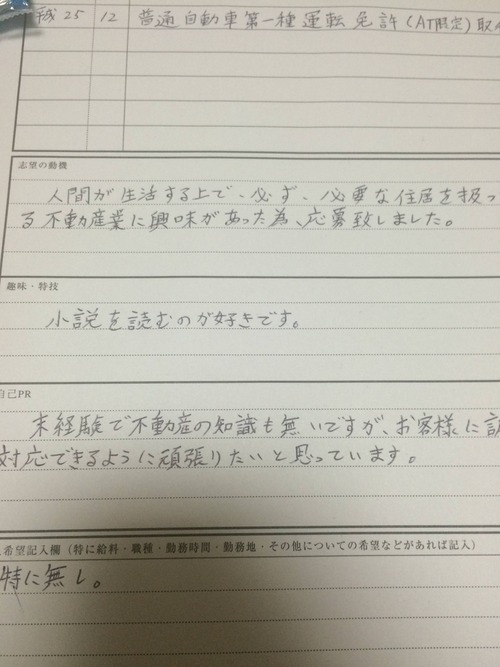 成 25 12 普通自動車第一種運転免許(AT限定)取
志望の動機
人間が生活する上で、必ず、必要な住居を扱っ
る不動産業に興味があった為、応募致しました。
趣味・特技
小説を読むのが好きです。
自己PR
末経験で不動産の知識も無いですが、お客様に
対応できるように頑張りたいと思っています。
希望記入欄(特に給料・職種・勤務時間・勤務地・その他についての希望などがあれば記入)
特に無し。